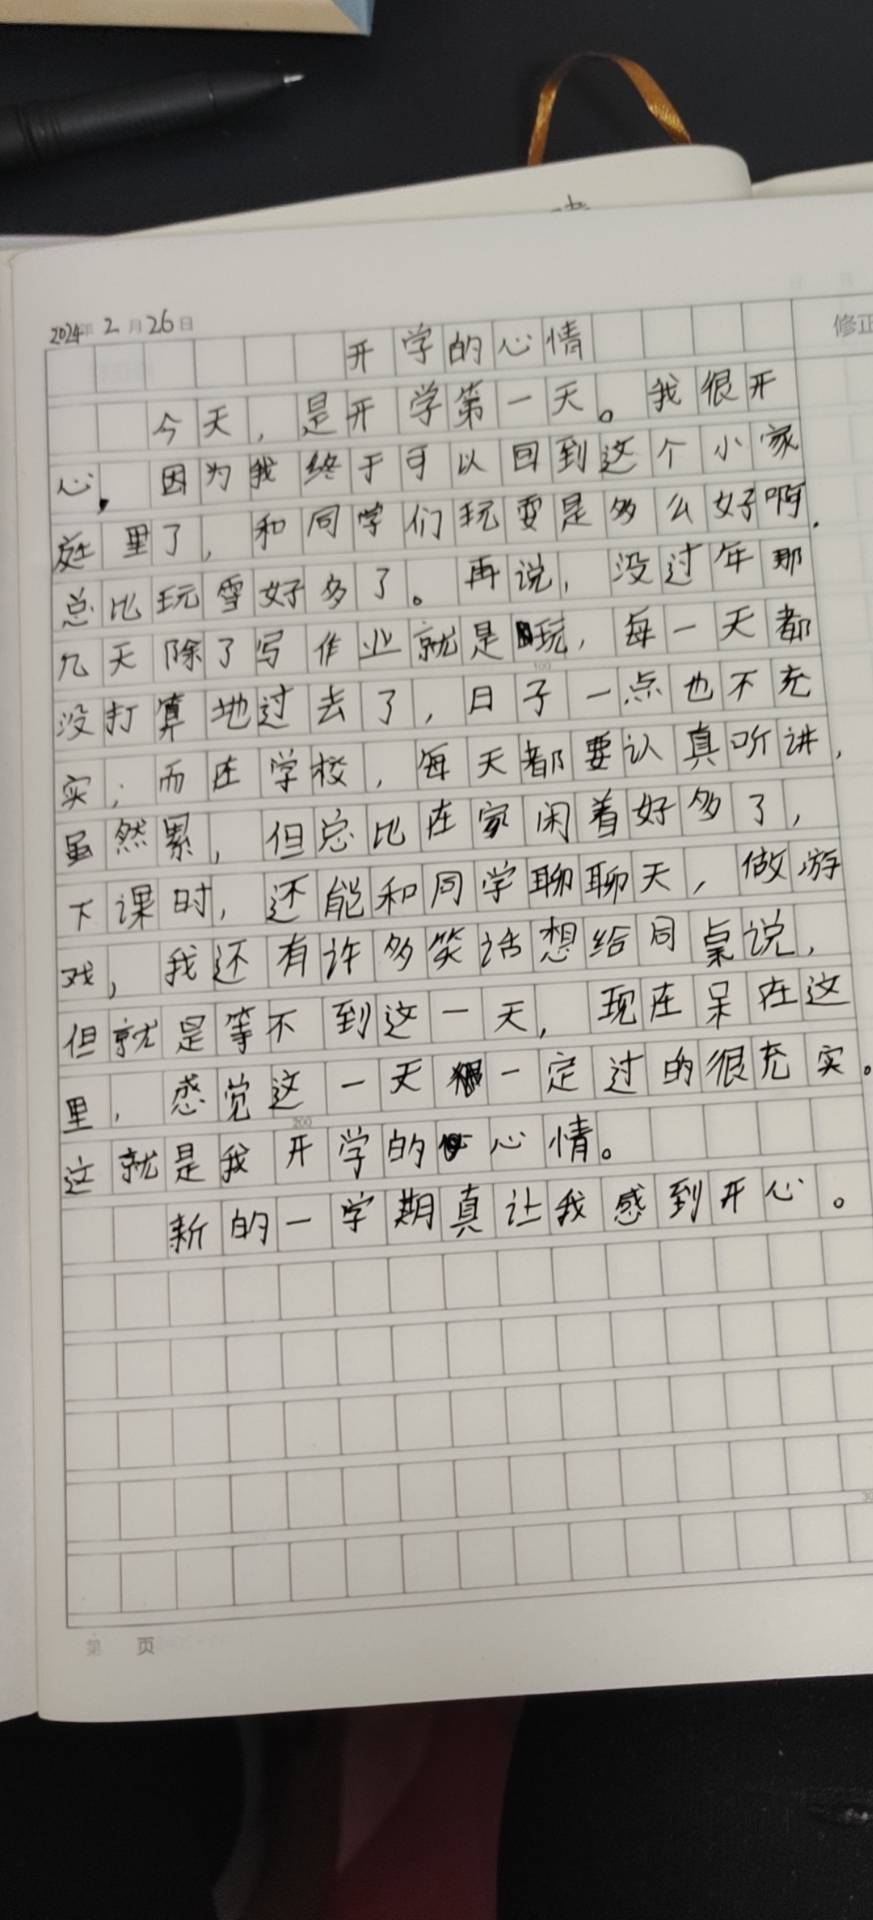 2024年2月26日
修正
开学的心情
今天，是开学第一天。我很开
心，因为我终于可以回到这个小家
庭里了，和同学们玩耍是多么好啊，
总比玩雪好多了。再说，没过年那
几天除了写作业就是玩，每一天都
没打算地过去了，日子一点也不充
实；而在学校，每天都要认真听讲，
虽然累，但总比在家闲着好多了，
下课时，还能和同学聊聊天，做游
戏，我还有许多笑话想给同桌说，
但就是等不到这一天，现在呆在这
里，感觉这一天一定过的很充实。
这就是我开学的心情。
新的一学期真让我感到开心。
100
200
第 页